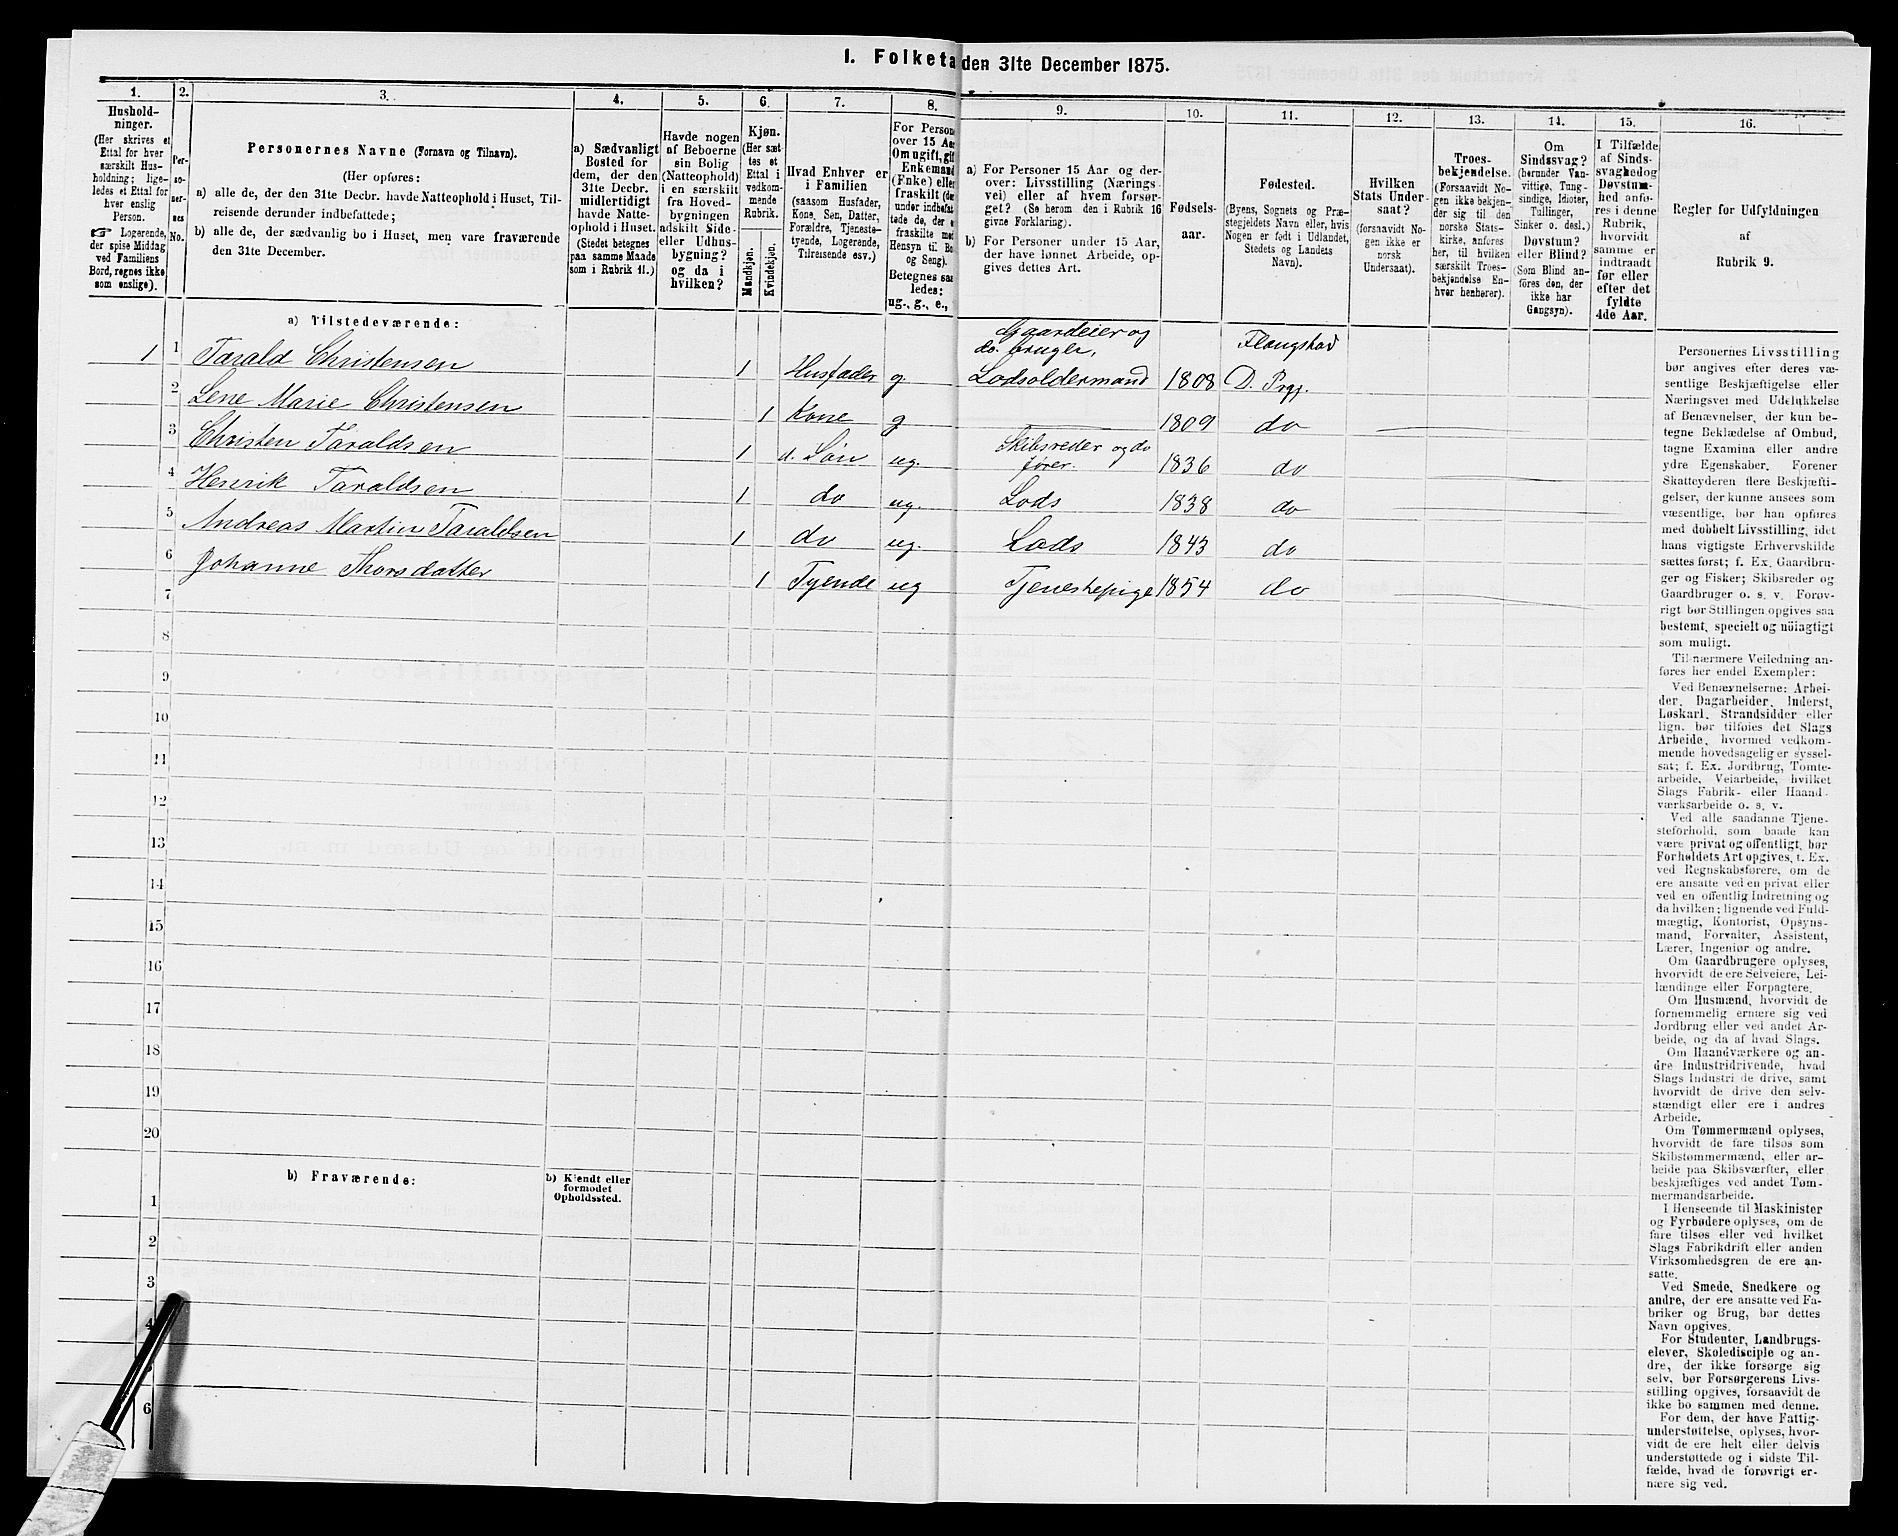 I. Folketa den 31te December 1875.
1. 2. 3. 4. 5. 6. 7. 8. 9. 10. 11. 12. 13. 14. 15. 16.
Hushold-
ninger.
(Her skrives et
Ettal for hver
særskilt Hus-
holdning; lige-
ledes et Ettal for
hver enslig
Person.
☞ Logerende,
der spise Middag
ved Familiens
Bord, regnes ikke
som enslige).
Per-
so-
ner-
nes
No.
Personernes Navne (Fornavn og Tilnavn).
(Her opføres:
a) alle de, der den 31te Decbr. havde Natteophold i Huset, Til-
reisende derunder indbefattede;
b) alle de, der sædvanlig bo i Huset, men vare fraværende
den 31te December.
a) Sædvanligt
Bosted for
dem, der den
31te Decbr.
midlertidigt
havde Natte-
ophold i Huset.
(Stedet betegnes
paa samme Maade
som i Rubrik 11.)
Havde nogen
af Beboerne
sin Bolig
(Natteophold)
i en særskilt
fra Hoved-
bygningen
adskilt Side-
eller Udhus-
bygning?
og da i
hvilken?
Kjøn.
(Her sæt-
tes et
Ettal i
vedkom-
mende
Rubrik.
Mandkjøn.
Kvindekjøn.
Hvad Enhver er
i Familien
(saasom Husfader,
Kone, Søn, Datter,
Forældre, Tjeneste-
tyende, Logerende,
Tilreisende osv.)
For Persone
over 15 Aar
Om ugift, gift
Enkemand
(Enke) eller
fraskilt (der
under indbefat
tede de, der e
fraskilte med
Hensyn til Bo
og Seng).
Betegnes saa
ledes:
ug., g., e.,
a) For Personer 15 Aar og der-
over: Livsstilling (Nærings
vei) eller af hvem forsør-
get? (Se herom den i Rubrik 16
givne Forklaring).
b) For Personer under 15 Aar,
der have lønnet Arbeide, op-
gives dettes Art.
Fødsels-
aar.
Fødested.
(Byens, Sognets og Præ-
stegjeldets Navn eller, hvis
Nogen er født i Udlandet,
Stedets og Landets
Navn).
Hvilken
Stats Under-
saat?
(forsaavidt No-
gen ikke er
norsk
Undersaat).
Troes-
bekjendelse.
(Forsaavidt No-
gen ikke bekjen-
der sig til den
norske Stats-
kirke, anføres
her, til hvilken
særskilt Troes-
bekjendelse En-
hver henhører).
Om
Sindssvag?
(herunder Van-
vittige, Tung-
sindige, Idioter,
Tullinger,
Sinker o. desl.)
Døvstum?
eller Blind?
(Som Blind an-
føres den, der
ikke har
Gangsyn).
I Tilfælde
af Sinds-
svaghed og
Døvstum-
hed anfø-
res i denne
Rubrik,
hvorvidt
samme er
indtraadt
før eller
efter det
fyldte
4de Aar.
Regler for Udfyldningen
af
Rubrik 9.
a) Tilstedeværende:
Gaardeier og
do. bruger, Flougstad
1 1 Tarald Christensen 1 Husfader g Lodsoldermand 1808 D. Prgj.
2 Lene Marie Christensen 1 Kone g 1809 do
3 Christen Taraldsen 1 d. Søn ug. Skibsreder og do
fører. 1836 do
4 Henrik Taraldsen 1 do ug. Lods 1838 do
5 Andreas Martin Taraldsen 1 do ug. Lods 1843 do
6 Johanne Thorsdatter 1 Tyende ug Tjenestepige 1854 do
7
8
9
10
11
12
13
14
15
16
17
18
19
20
b) Fraværende: b) Kjendt eller
formodet
Opholdssted.
1
2
3
4
6
Personernes Livsstilling
bør angives efter deres væ-
sentlige Beskjæftigelse eller
Næringsvei med Udelukkelse
af Benævnelser, der kun be-
tegne Beklædelse af Ombud,
tagne Examina eller andre
ydre Egenskaber. Forener
Skatteyderen flere Beskjæfti-
gelser, der kunne ansees som
væsentlige, bør han opføres
med dobbelt Livsstilling, idet
hans vigtigste Erhvervskilde
sættes først; f. Ex. Gaardbru-
ger og Fisker; Skibsreder og
Gaardbruger o. s. v. Forøv-
rigt bør Stillingen opgives saa
bestemt, specielt og nöiagtigt
som muligt.
Til nærmere Veiledning an-
føres her endel Exempler:
Ved Benævnelserne: Arbei-
der, Dagarbeider, Inderst,
Løskarl, Strandsidder eller
lign. bør tilføies det Slags
Arbeide, hvormed vedkom-
mende hovedsagelig er syssel-
sat; f. Ex. Jordbrug, Tomte-
arbeide, Veiarbeide, hvilket
Slags Fabrik- eller Haand-
værksarbeide o. s. v.
Ved alle saadanne Tjene-
steforhold, som baade kan
være privat og offentligt, bør
Forholdets Art opgives, f. Ex.
ved Regnskabsførere, om de
ere ansatte ved en privat eller
ved en offentlig Indretning og
da hvilken; lignende ved Fuld-
mægtig, Kontorist, Opsyns-
mand, Forvalter, Assistent,
Lærer, Ingeniør og andre.
Om Gaardbrugere oplyses,
hvorvidt de ere Selveiere, Lei-
lændinge eller Forpagtere.
Om Husmænd, hvorvidt de
fornemmelig ernære sig ved
Jordbrug eller ved andet Ar-
beide, og da af hvad Slags.
Om Haandværkere og an-
dre Industridrivende, hvad
Slags Industri de drive, samt
hvorvidt de drive den selv-
stændigt eller ere i andres
Arbeide.
Om Tømmermænd oplyses,
hvorvidt de fare tilsøs som
Skibstømmermænd, eller ar-
beide paa Skibsværfter, eller
beskjæftiges ved andet Tøm-
mermandsarbeide.
I Henseende til Maskinister
og Fyrbødere oplyses, om de
fare tilsøs eller ved hvilket
Slags Fabrikdrift eller anden
Virksomhedsgren de ere an-
satte.
Ved Smede, Snedkere og
andre, der ere ansatte ved Fa-
briker og Brug, bør dettes
Navn opgives.
For Studenter, Landbrugs-
elever, Skoledisciple og an-
dre, der ikke forsørge sig
selv, bør Forsørgerens Livs-
stilling opgives, forsaavidt de
ikke bo sammen med denne.
For dem, der have Fattig-
understøttelse, oplyses, hvor-
vidt de ere helt eller delvis
understøttede og i sidste Til-
fælde, hvad de forøvrigt er-
nære sig ved.